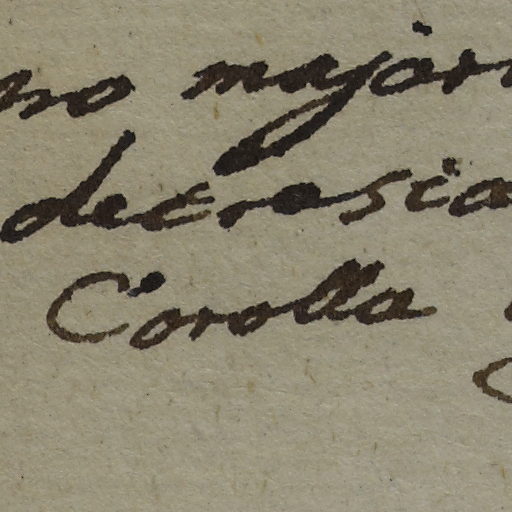 no major
decresca
Corolla